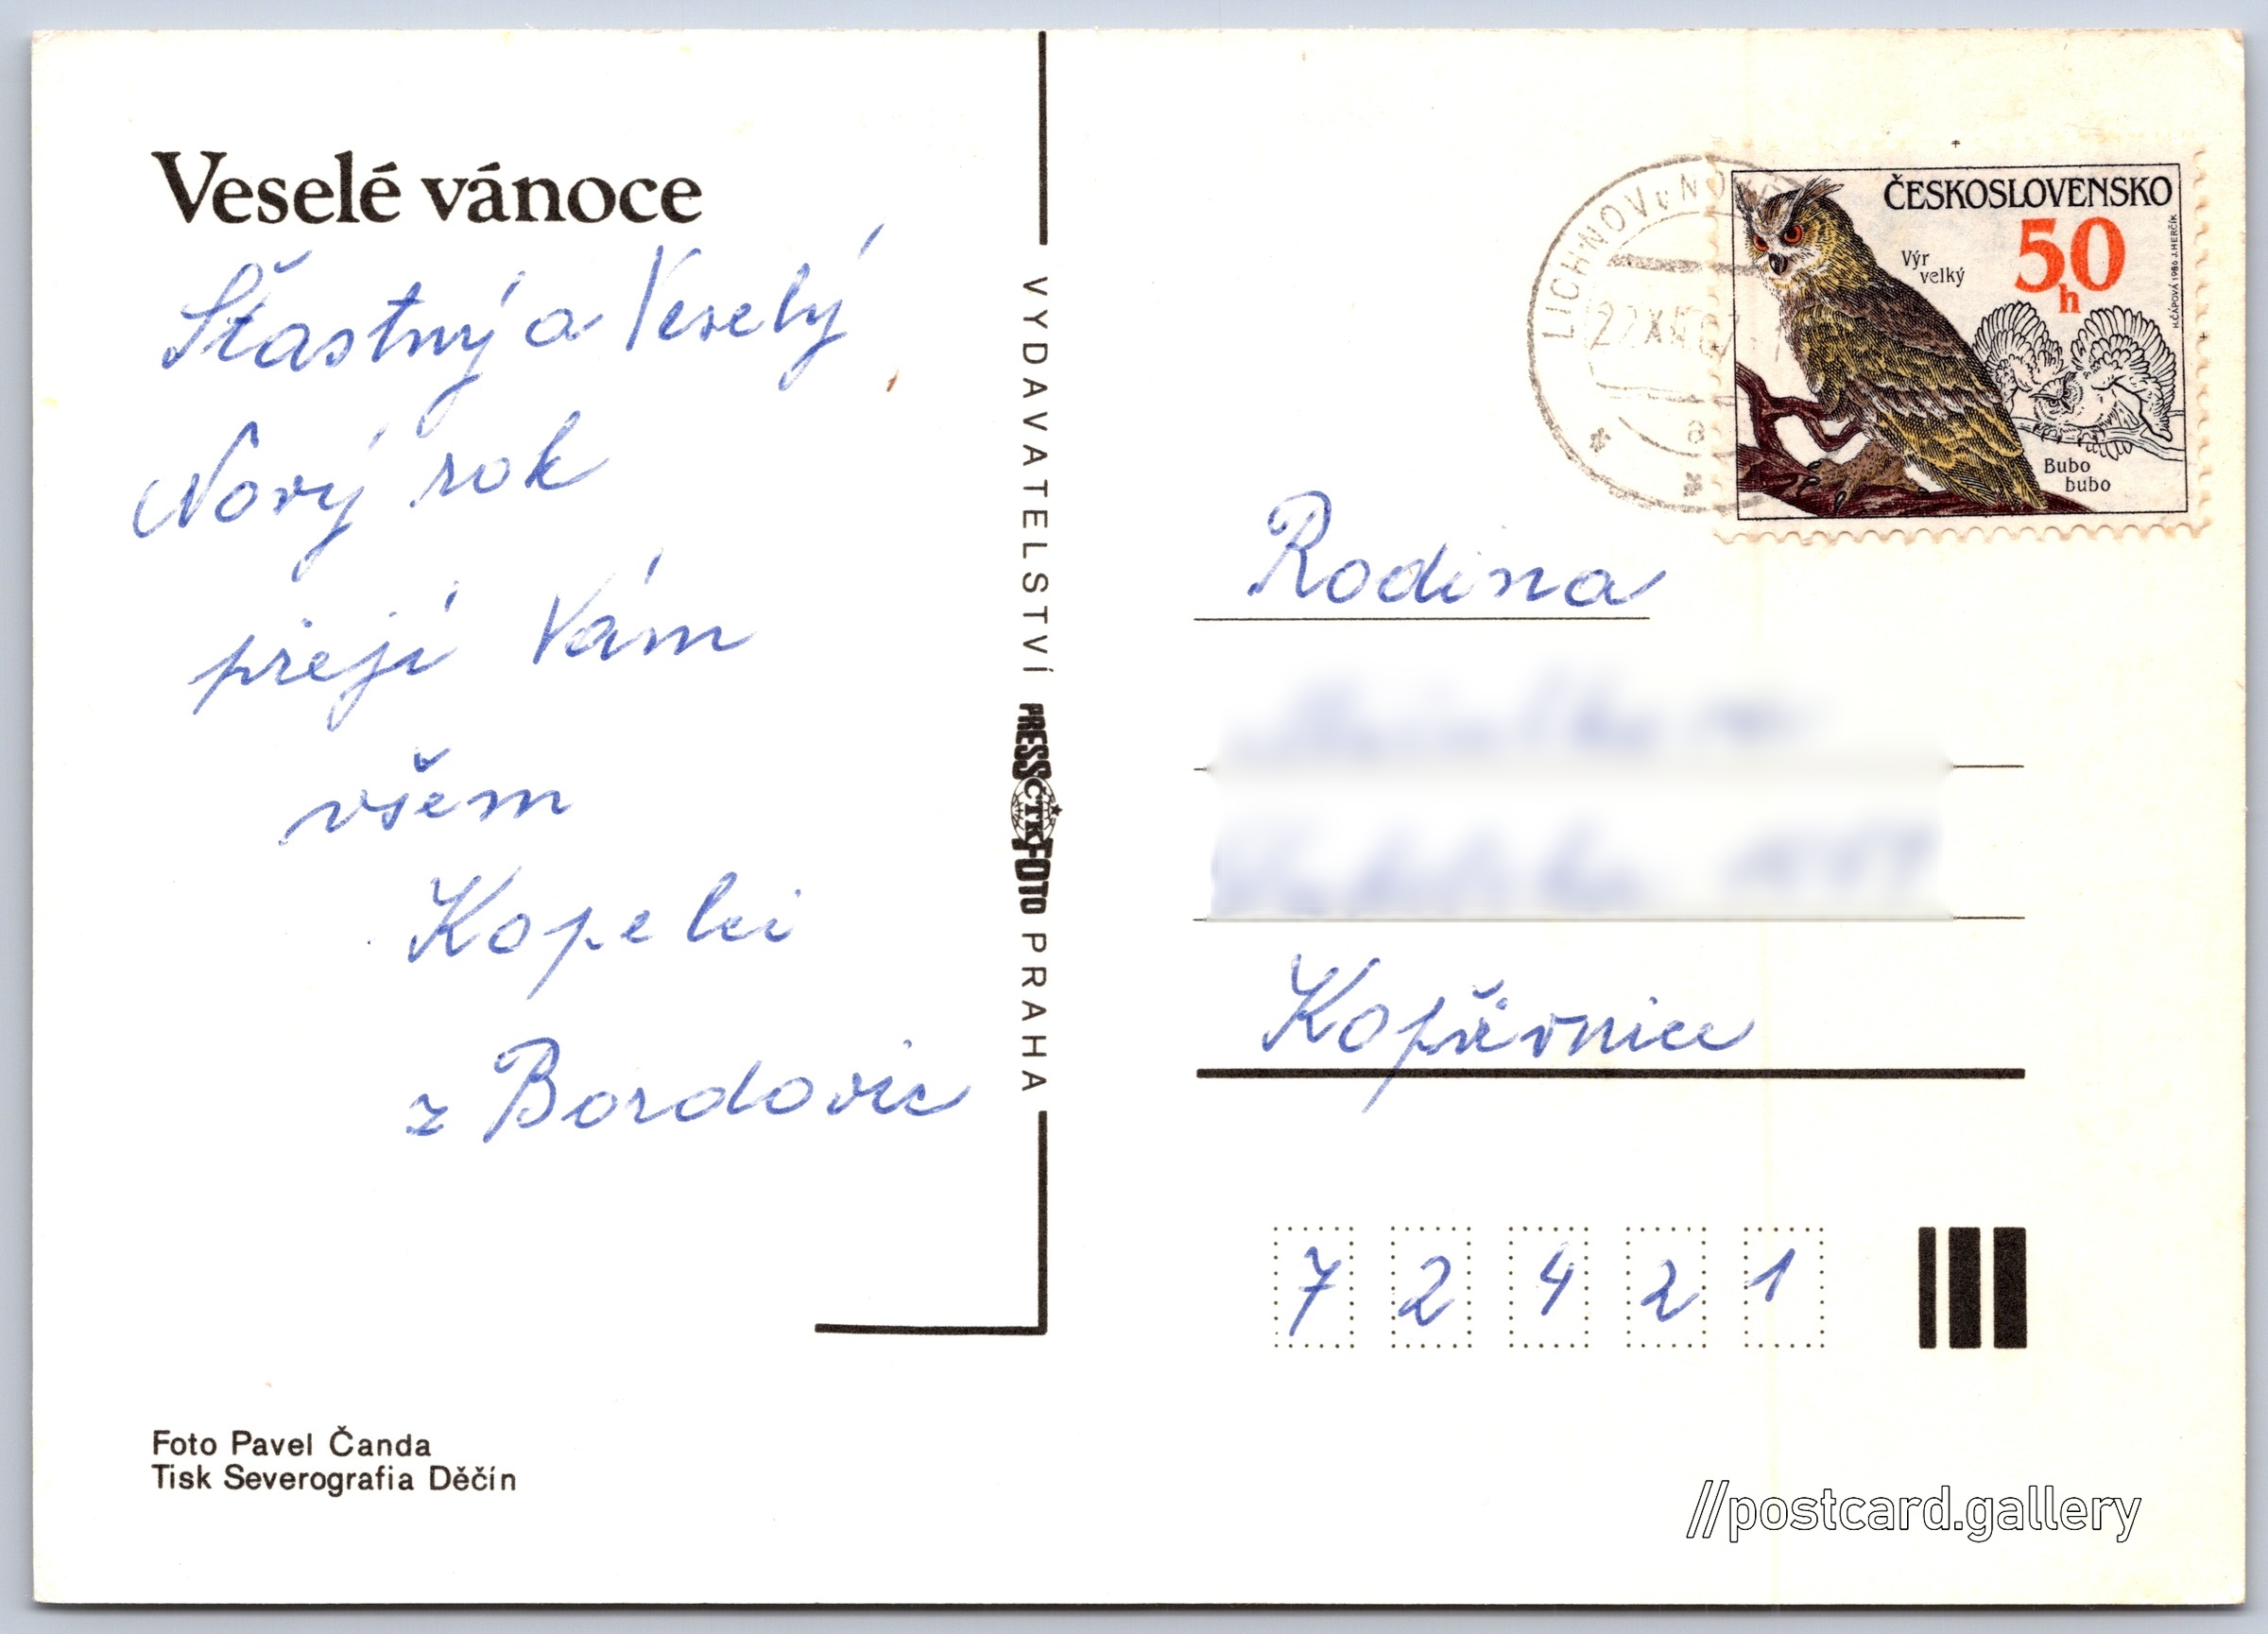 Veselé vánoce
Šťastný a Veselý
Nový rok
přejí Vám
všem
Kopelci
z Bordovic
Foto Pavel Čanda
Tisk Severografia Děčín
VYDAVATELSTVÍ PRESSČTKFOTO PRAHA
LICHNOV u NOV
22.XII.87
a
ČESKOSLOVENSKO
50
h
Výr
velký
Bubo
bubo
H.ČÁPOVÁ 1986 J.HERČÍK
Rodina
Kopřivnice
7 2 4 2 1
//postcard.gallery